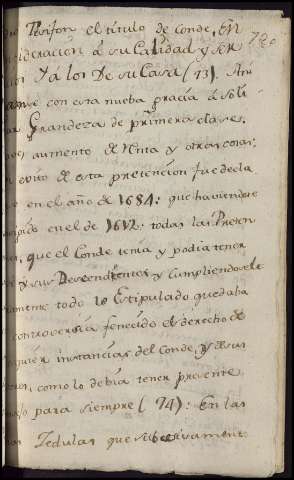 el título de Conde, en
sideracion á su Calidad y Ser
y á los De su Casa (73). Ani
con esta nueba gracia á soli
Grandeza de primera clase,
aumento de Renta y otras cosas;
exito de esta pretencion fue decla
en el año de 1684: que haviendose
en el de 1612: todas las Preten
que el Conde tenia y podia tener
y sus Desendientes y Cumpliendosele
mente todo lo Estipulado quedaba
controversia fenecido el derecho de
instancias del Conde, y de sus
como lo debia tener presente
para siempre (74): En las
Zedulas que